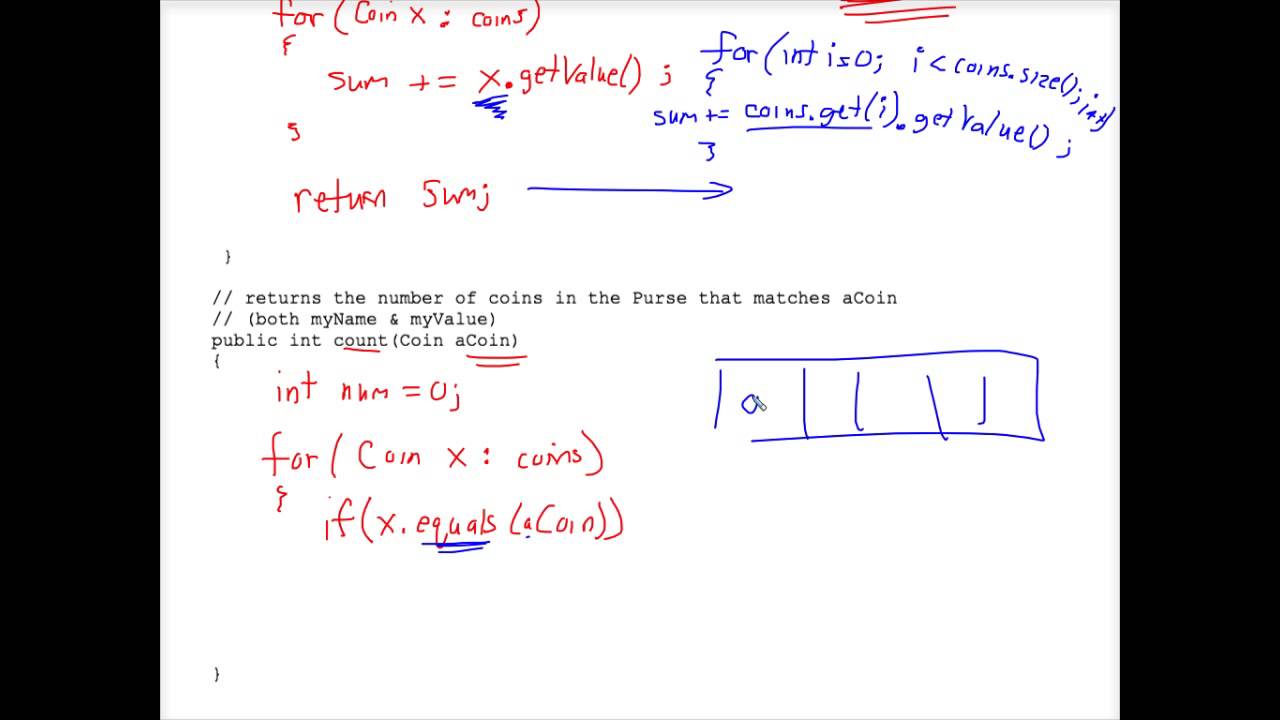 for (Coin x : coins)
{
sum += x.getValue() ;
}
return sum;
for (int i=0; i < coins.size(); i++)
{
sum += coins.get(i).getValue() ;
}
}
// returns the number of coins in the Purse that matches aCoin
// (both myName & myValue)
public int count(Coin aCoin)
{
int num = 0;
for ( Coin x : coins)
{
if (x. equals (aCoin))
a
}